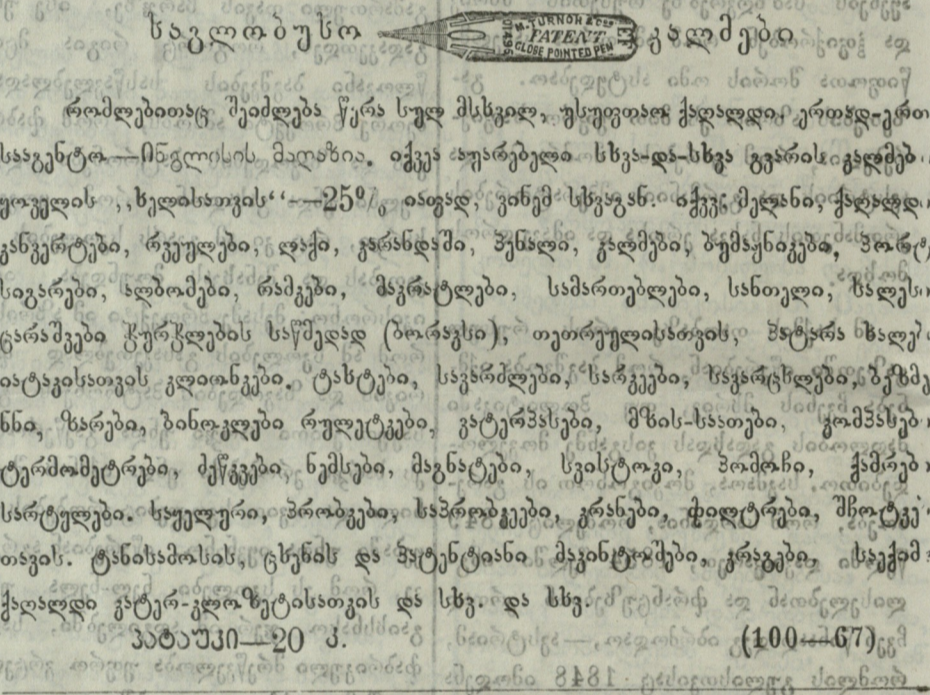 საგლობუსო M. TURNOR & Co's PATENT CLOSE POINTED PEN EF კალმები
რომლებითაც შეიძლება წერა სულ მსხვილ, უსუფთაო ქაღალდი, ერთად-ერთ
სააგენტო—ინგლისის მაღაზია. იქვეა აუარებელი სხვა-და-სხვა გვარის კალმებ
ყოველის ,,ხელისათვის“—25% იაფად, ვინემ სხვაგან. იქვე მელანი, ქაღალდ
კანვერტები, რვეულები, ლაქი, კარანდაში, პენალი, კალმები, ბუმაჟნიკები, პორტ
სიგარები, ალბომები, რამკები, მაკრატლები, სამართებლები, სანთელი, სალეს
ცარაშვები ჭურჭლების საწმედად (ბორაკსი), თეთრეულისათვის, პატარა ხალე
იატაკისათვის კლიონკები. ტასტები, სავარძლები, სარკეები, სავარცხლები, ბეზმე
ნნი, ზარები, ბინოკლები რულეტკები, ვატერპასები, მზის-საათები, კომპასებ
ტერმომეტრები, ძეწკვები, ნემსები, მაგნატები, სვისტოკი, პომოჩი, ქამრებ
სარტულები. საყელური, პრობკები, საპრობკეები, კრანები, ფილტრები, შჩოტკე
თავის. ტანისამოსის, ცხენის და პატენტიანი მაკინტოშები, კრაგები, საექიმ
ქაღალდი ვატერ-კლოზეტისათვის და სხვ. და სხვ.
პატაუკი—20 კ. (100—67)